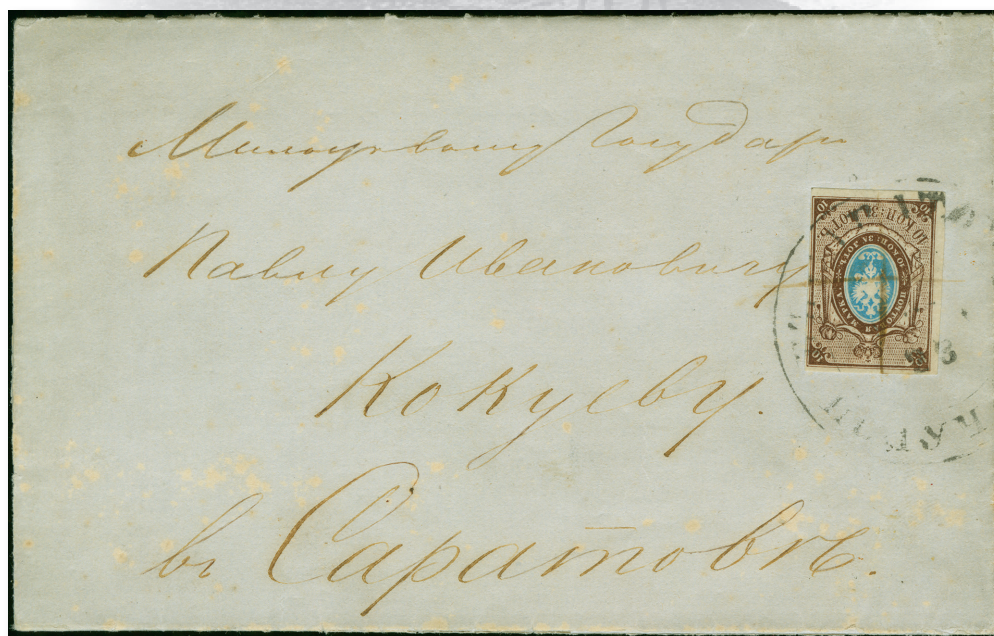 Милостивому Государю
Павлу Ивановичу
Кокуеву.
въ Саратовѣ.
10 КОП: ЗА ЛОТЪ.
10
10
10